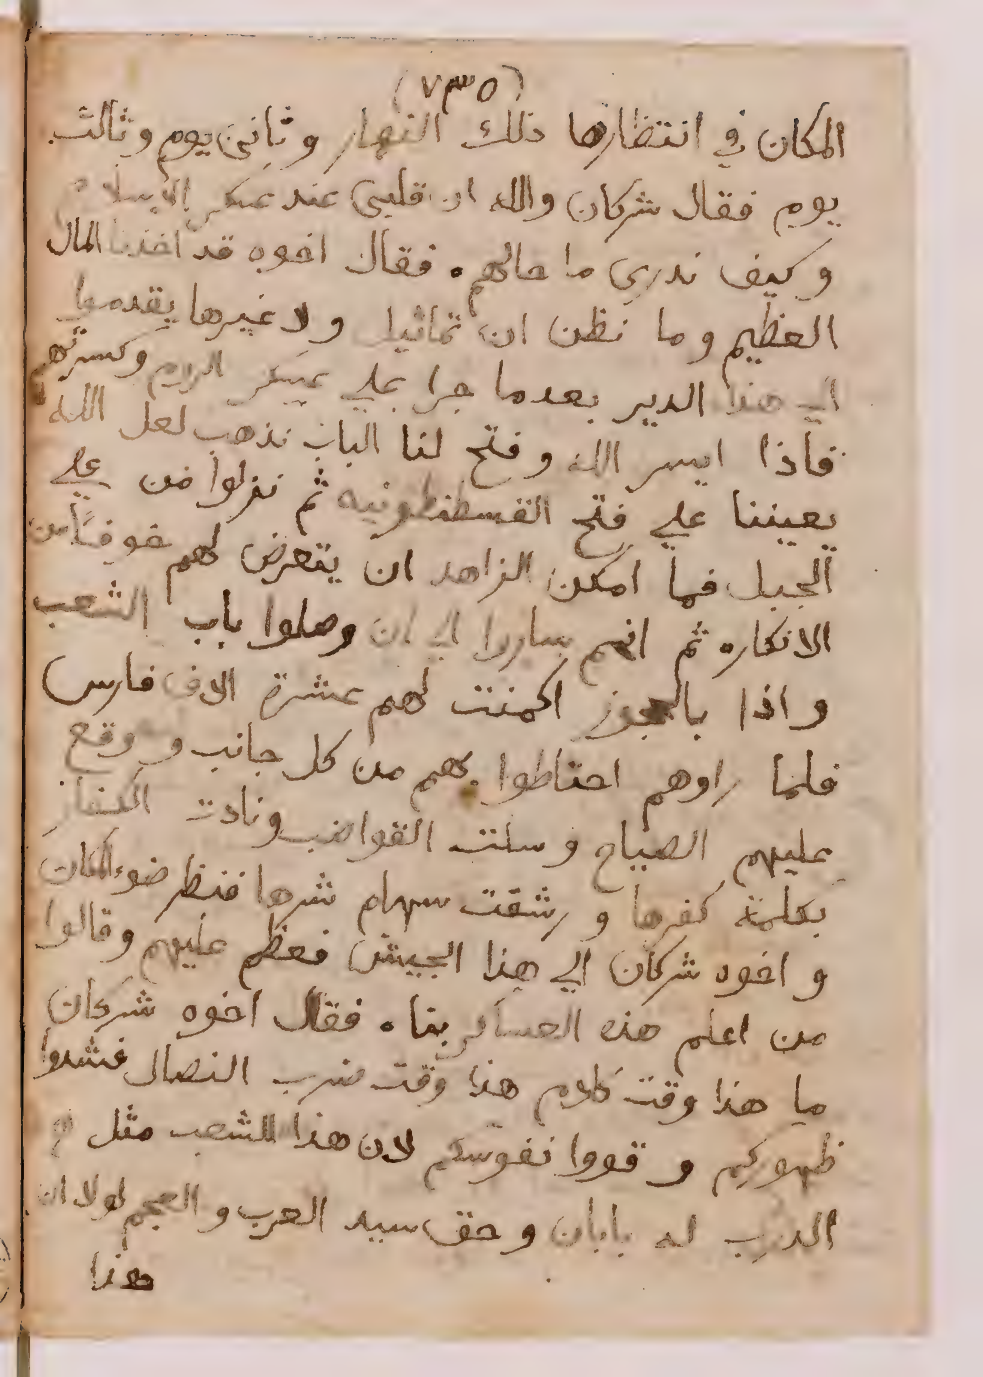 (٧٣٥)
المكان في انتظارها ذلك النهار وثاني يوم وثالث
يوم فقال شركان والله ان قلبي عند عسكر الاسلام
وكيف ندري ما حالهم. فقال اخوه قد اخذنا المال
العظيم وما نظن ان تماثيل ولا غيرها يقدموا
الي هذا الدير بعدما جرا علي عسكر الروم وكسرتهم
فاذا ايسر الله وفتح لنا الباب نذهب لعل الله
يعيننا علي فتح القسطنطونيه ثم نزلوا من علي
الجبل فما امكن الزاهد ان يتعرض لهم خوفًا من
الانكاره ثم انهم ساروا الي ان وصلوا باب الشعب
واذا بالعجوز اكمنت لهم عشرة الاف فارس
فلما راوهم احتاطوا بهم من كل جانب ووقع
عليهم الصياح وسلت القواضب ونادت الكفار
بكلمة كفرها ورشقت سهام شرها فنظر ضوء المكان
واخوه شركان الي هذا الجيش فعظم عليهم وقالوا
من اعلم هذه العساكر بنا. فقال اخوه شركان
ما هذا وقت كلام هذا وقت ضرب النصال فشدوا
ظهوركم وقووا نفوسكم لان هذا الشعب مثل
الدرب له بابان وحق سيد العرب والعجم لولا ان
هذا